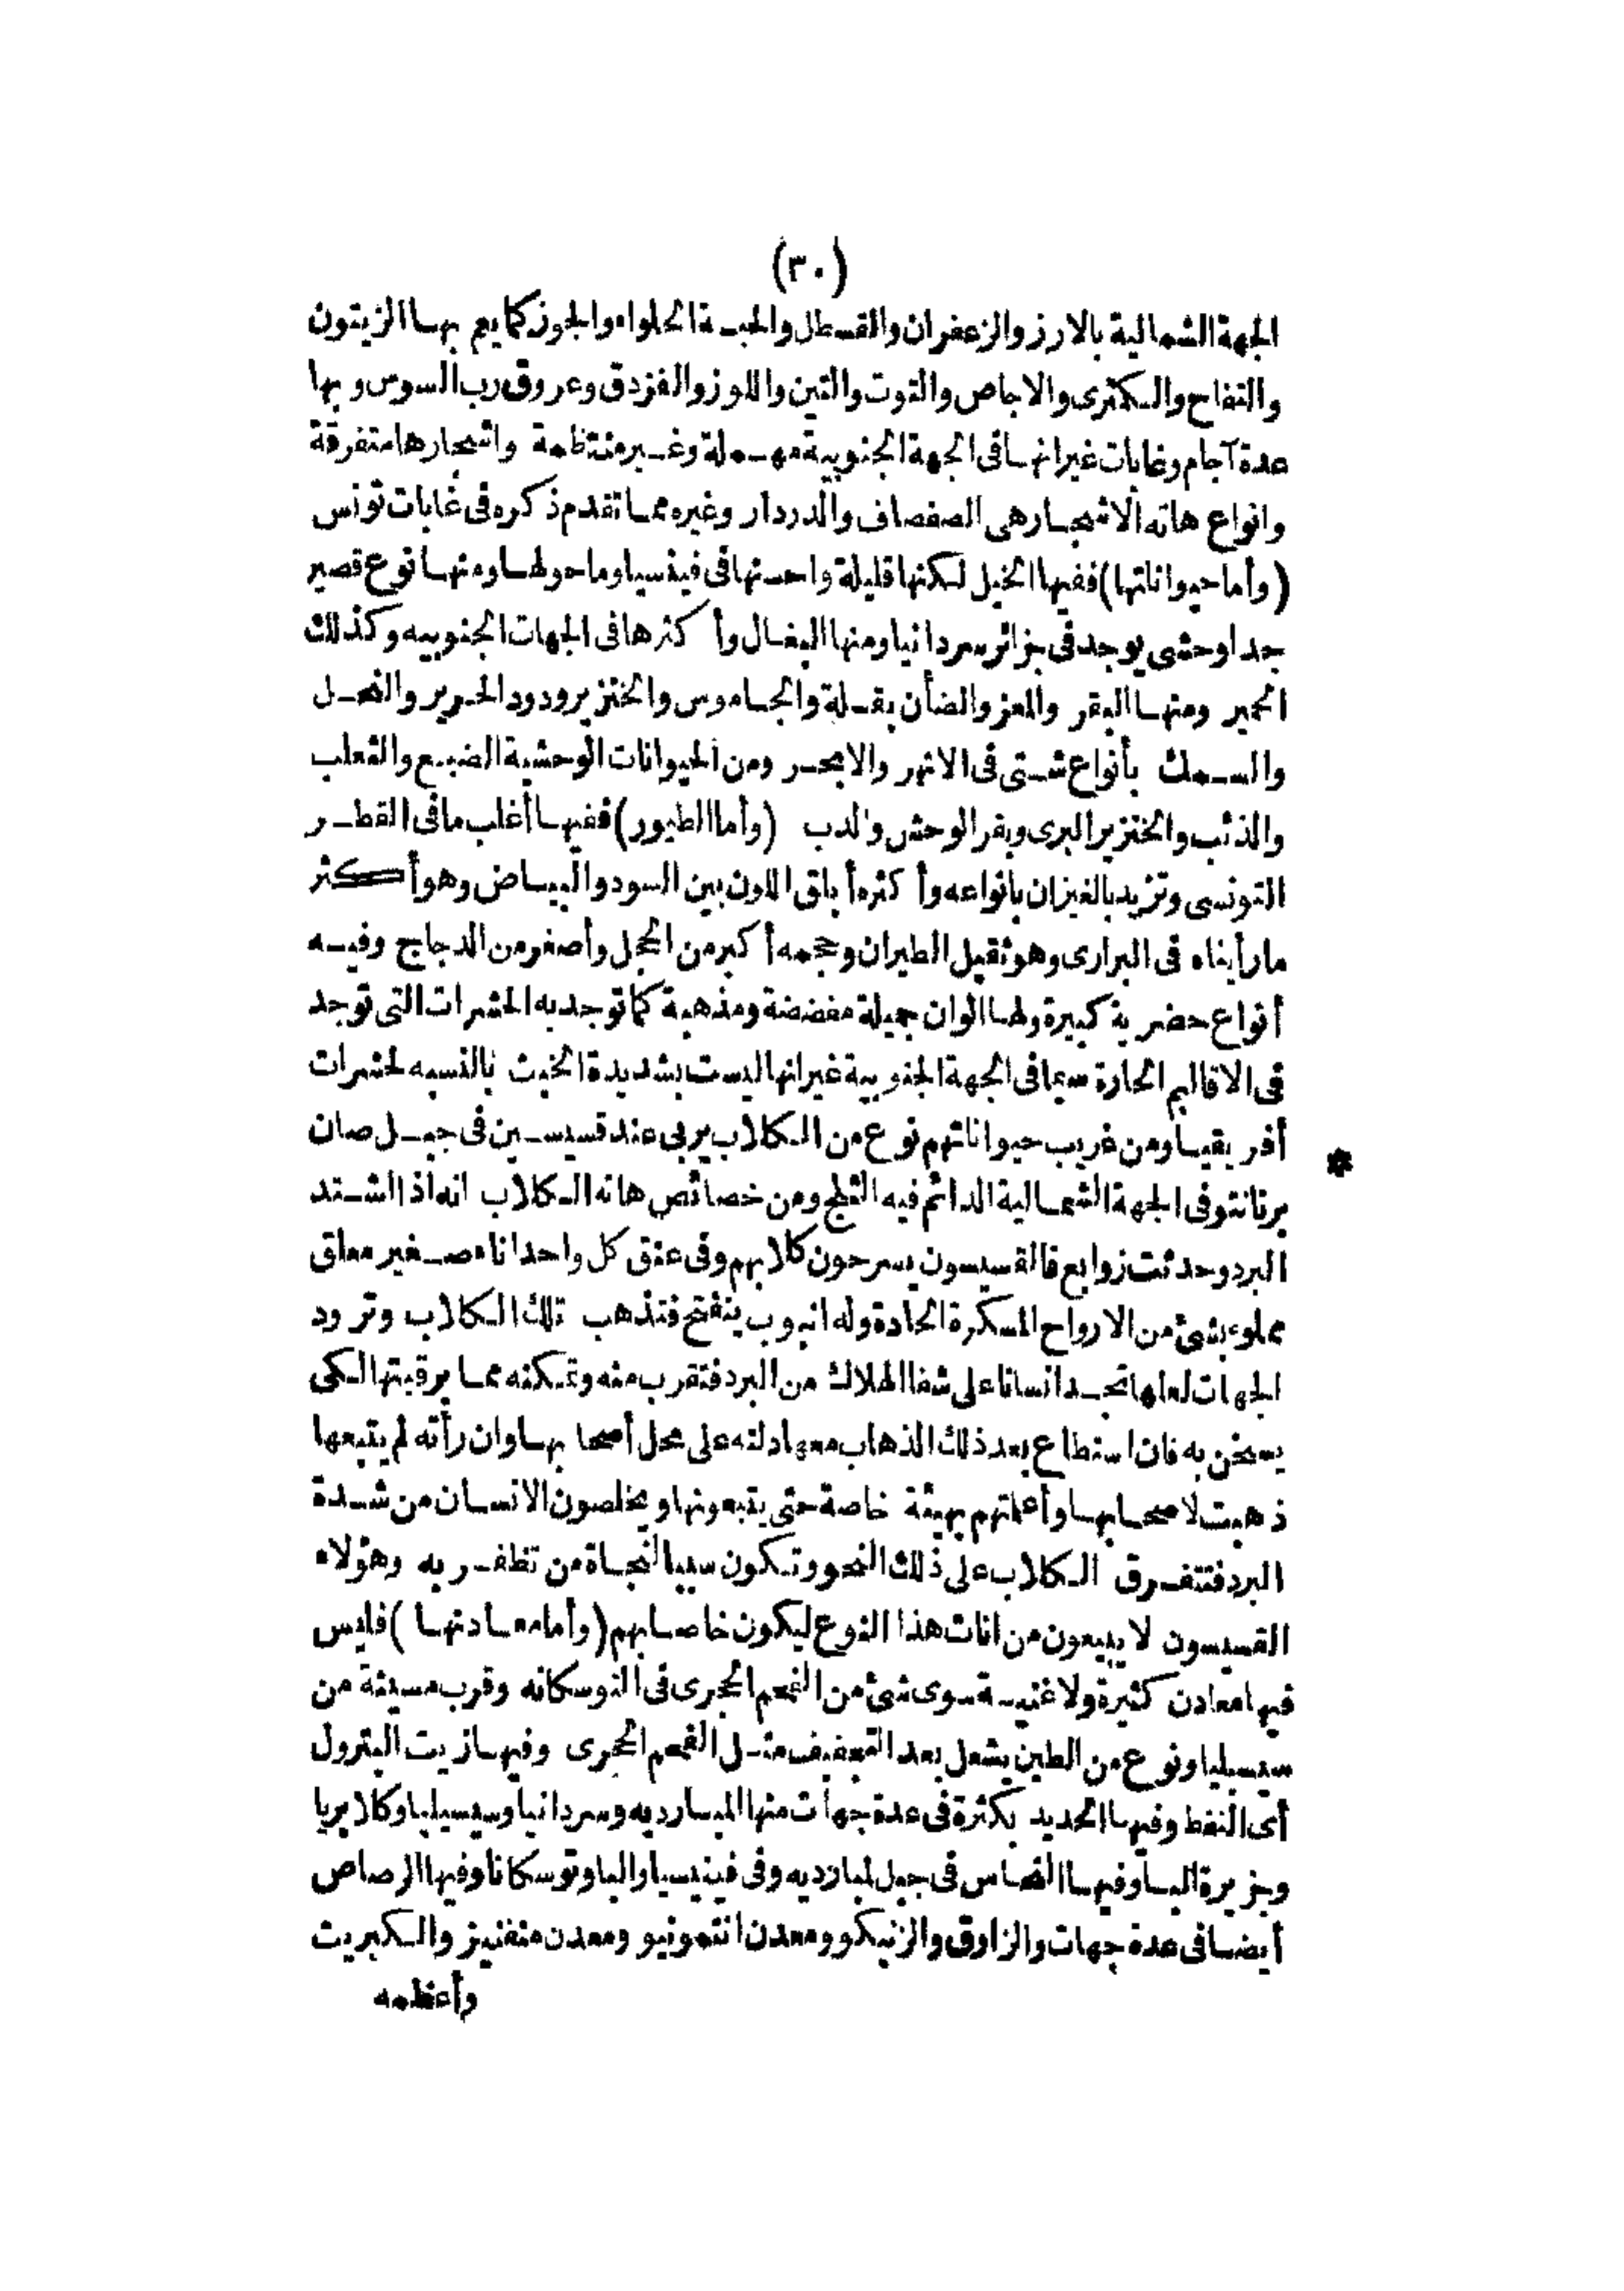 (٣٠)
الجهة الشمالية بالارز والزعفران والقسطل والحبة الحلواء والجوز كما يعم بها الزيتون
والتفاح والكمثرى والاجاص والتوت والتين واللوز والفزدق وعروق رب السوس وبها
عدة آجام وغابات غير انها فى الجهة الجنوبية مهملة وغير منتظمة واشجارها متفرقة
وانواع هاته الاشجار هى الصفصاف والدردار وغيره مما تقدم ذكره فى غابات تونس
(وأما حيواناتها) ففيها الخيل لكنها قليلة واحسنها فى فينسيا وما حولها ومنها نوع قصير
جدا وحشى يوجد فى جزائر سردانيا ومنها البغال وأكثرها فى الجهات الجنوبيه وكذلك
الحمير ومنها البقر والمعز والضأن بقلة والجاموس والخنزير ودود الحرير والنحل
والسمك بأنواع شتى فى الانهر والابحر ومن الحيوانات الوحشية الضبع والثعلب
والذئب والخنزير البرى وبقر الوحش والدب (وأما الطيور) ففيها أغلب ما فى القطر
التونسى وتزيد بالغيزان بانواعه وأكثره أبلق اللون بين السود والبياض وهو أكثر
ما رأيناه فى البرارى وهو ثقيل الطيران وحجمه أكبر من الحجل وأصغر من الدجاج وفيه
أنواع حضرية كبيرة ولها الوان جميلة مفضضة ومذهبة كما توجد به الحشرات التى توجد
فى الاقاليم الحارة سيما فى الجهة الجنوبية غير انها ليست بشديدة الخبث بالنسبه لحشرات
أفريقيا ومن غريب حيواناتهم نوع من الكلاب يربى عند قسيسين فى جبل صان
برنانتو فى الجهة الشمالية الدائم فيه الثلج ومن خصائص هاته الكلاب انه اذا اشتد
البرد وحدثت زوابع فالقسيسون يسرحون كلابهم وفى عنق كل واحد اناء صغير معلق
مملوء بشئ من الارواح المسكرة الحادة وله انبوب ينفتح فتذهب تلك الكلاب وترود
الجهات لعلها تجد انسانا على شفا الهلاك من البرد فتقرب منه وتمكنه مما برقبتها لكى
يسخن به فان استطاع بعد ذلك الذهاب معها دلته على محل أصحابها وان رأته لم يتبعها
ذهبت لاصحابها وأعلمتهم بهيئة خاصة حتى يتبعونها ويخلصون الانسان من شدة
البرد فتتفرق الكلاب على ذلك النحو وتكون سببا لنجاة من تظفر به وهؤلاء
القسيسون لا يبيعون من اناث هذا النوع ليكون خاصا بهم (وأما معادنها) فليس
فيها معادن كثيرة ولا غنية سوى شئ من الفحم الحجرى فى التوسكانه وقرب مسينة من
سيسيليا ونوع من الطين يشعل بعد التجفيف مثل الفحم الحجرى وفيها زيت البترول
أى النفط وفيها الحديد بكثرة فى عدة جهات منها لمبارديه وسردانيا وسيسيليا وكلابريا
وجزيرة البا وفيها النحاس فى جبل لمبارديه وفى فينيسيا والبا وتوسكانا وفيها الرصاص
أيضا فى عدة جهات والزاوق والزنيكو ومعدن انتمونيو ومعدن منقنيز والكبريت
وأعظمه
*